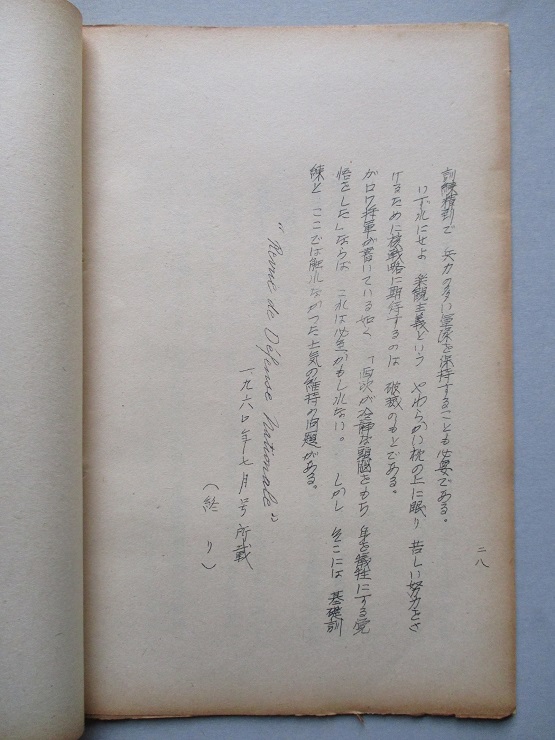 二八
訓練積り で 兵力の多い軍隊を保持することも必要である。
いずれにせよ 楽観主義という やわらかい枕の上に眠り 苦しい努力をさ
けるために核戦略に期待するのは 破滅のもとである。
がロワ将軍が書いている如く 「西欧が冷静な頭脳をもち 年を犠牲にする覚
悟をした」ならば これは必至かもしれない。 しかし そこには 基礎訓
練と ここでは触れなかつた士気の維持の問題がある。
"Revue de Défense Nationale"
一九六〇年七月号所載
(終り)